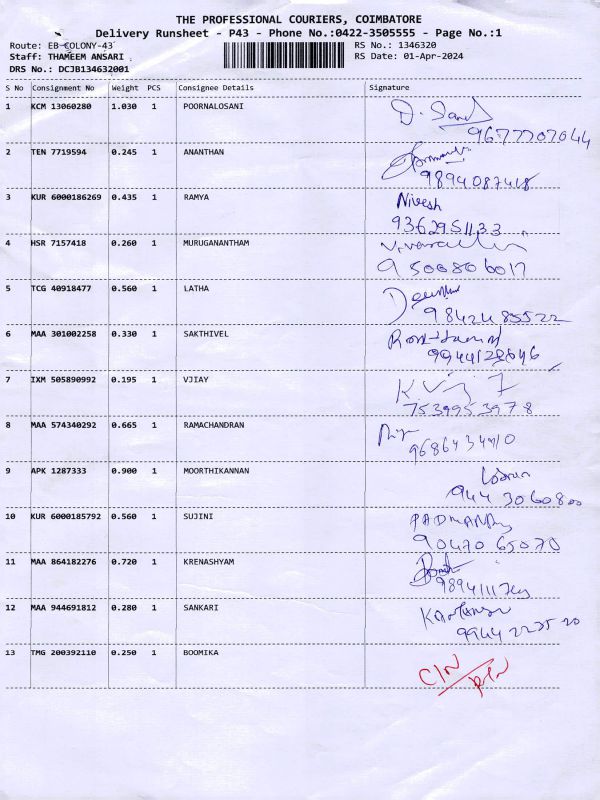 THE PROFESSIONAL COURIERS, COIMBATORE
Delivery Runsheet - P43 - Phone No.:0422-3505555 - Page No.:1
Route: EB-COLONY-43 RS No.: 1346320
Staff: THAMEEM ANSARI RS Date: 01-Apr-2024
DRS No.: DCJB134632001
S No Consignment No Weight PCS Consignee Details Signature
1 KCM 13060280 1.030 1 POORNALOSANI
9677707044
2 TEN 7719594 0.245 1 ANANTHAN
9894087418
3 KUR 6000186269 0.435 1 RAMYA Nivesh
9362951133
4 HSR 7157418 0.260 1 MURUGANANTHAM
9500806017
5 TCG 40918477 0.560 1 LATHA
9842485522
6 MAA 301002258 0.330 1 SAKTHIVEL
7 IXM 505890992 0.195 1 VJIAY
7539953978
8 MAA 574340292 0.665 1 RAMACHANDRAN
9686434910
9 APK 1287333 0.900 1 MOORTHIKANNAN
944 3060800
10 KUR 6000185792 0.560 1 SUJINI
90470 65070
11 MAA 864182276 0.720 1 KRENASHYAM
12 MAR 944691812 0.280 1 SANKARI
13 TMG 200392110 0.250 1 BOOMIKA